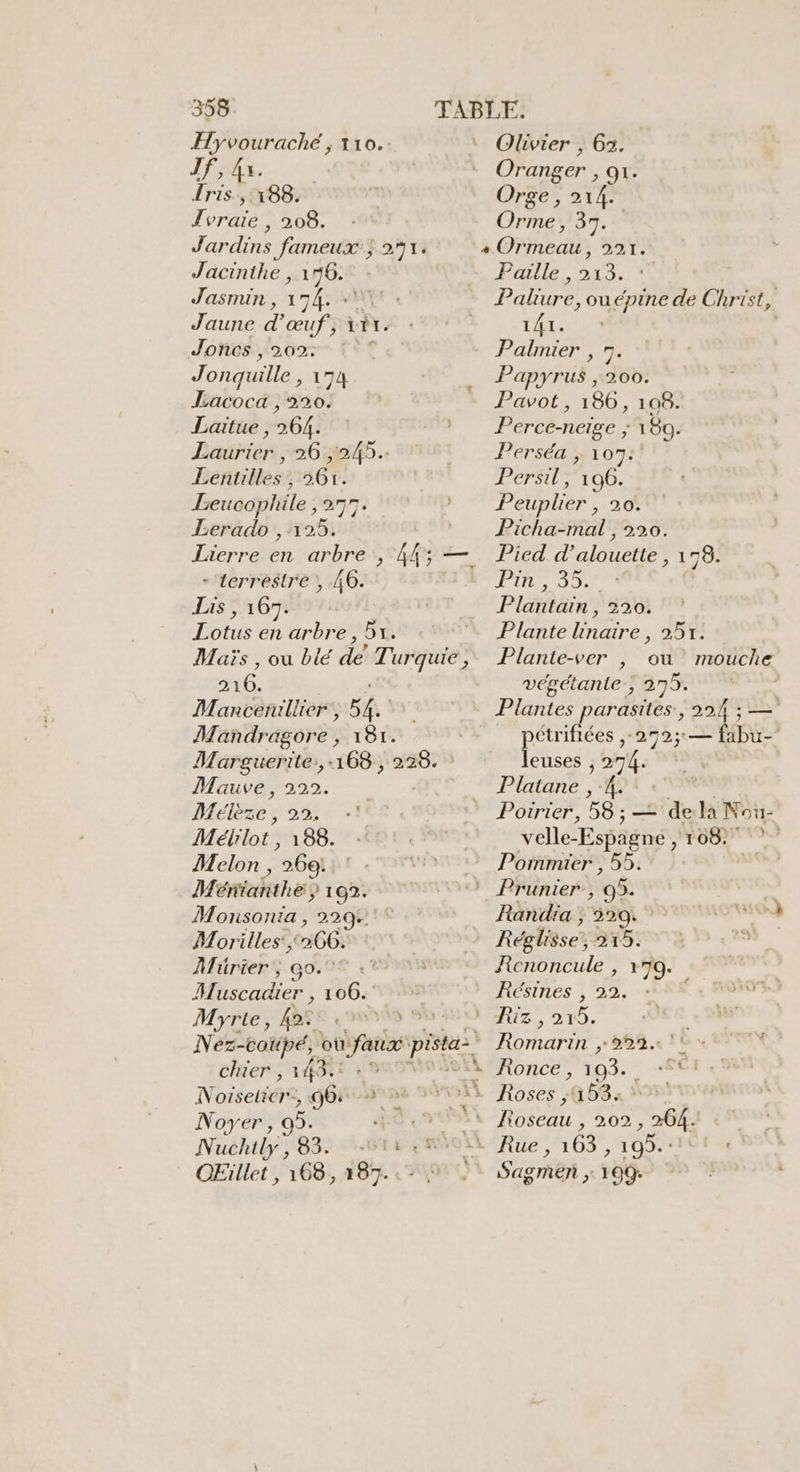 358 TABLE.
Hyvouraché, 110.
If, 41.
Iris, 188.
Ivraie, 208.
Jardins fameux; 271.
Jacinthe, 176.
Jasmin, 174.
Jaune d'œuf, 111.
Joncs, 202.
Jonquille, 174
Lacoca, 220.
Laitue, 264.
Laurier, 26, 245.
Lentilles, 261.
Leucophile, 277.
Lerado, 125.
Lierre en arbre, 44; —
terrestre, 46.
Lis, 167.
Lotus en arbre, 51.
Maïs, ou blé de Turquie,
216.
Mancenillier, 54.
Mandragore, 181.
Marguerite, 168, 228.
Mauve, 222.
Mélèze, 22.
Mélilot, 188.
Melon, 269.
Ménianthe, 192.
Monsonia, 229.
Morilles, 266.
Mûrier, 90.
Muscadier, 106.
Myrte, 42.
Nez-coupé, ou faux pista-
chier, 143.
Noisetier, 96.
Noyer, 95.
Nuchtly, 83.
Œillet, 168, 187.
Olivier, 62.
Oranger, 91.
Orge, 214.
Orme, 37.
Ormeau, 221.
Paille, 213.
Paliure, ou épine de Christ,
141.
Palmier, 7.
Papyrus, 200.
Pavot, 186, 198.
Perce-neige, 189.
Perséa, 107.
Persil, 196.
Peuplier, 20.
Picha-mal, 220.
Pied d'alouette, 178.
Pin, 35.
Plantain, 220.
Plante linaire, 251.
Plante-ver, ou mouche
végétante, 275.
Plantes parasites, 224; —
pétrifiées, 272; — fabu-
leuses, 274.
Platane, 4.
Poirier, 58; — de la Nou-
velle-Espagne, 108.
Pommier, 55.
Prunier, 95.
Randia, 229.
Réglisse, 215.
Renoncule, 179.
Résines, 22.
Riz, 215.
Romarin, 222.
Ronce, 193.
Roses, 153.
Roseau, 202, 264.
Rue, 163, 195.
Sagmen, 199.